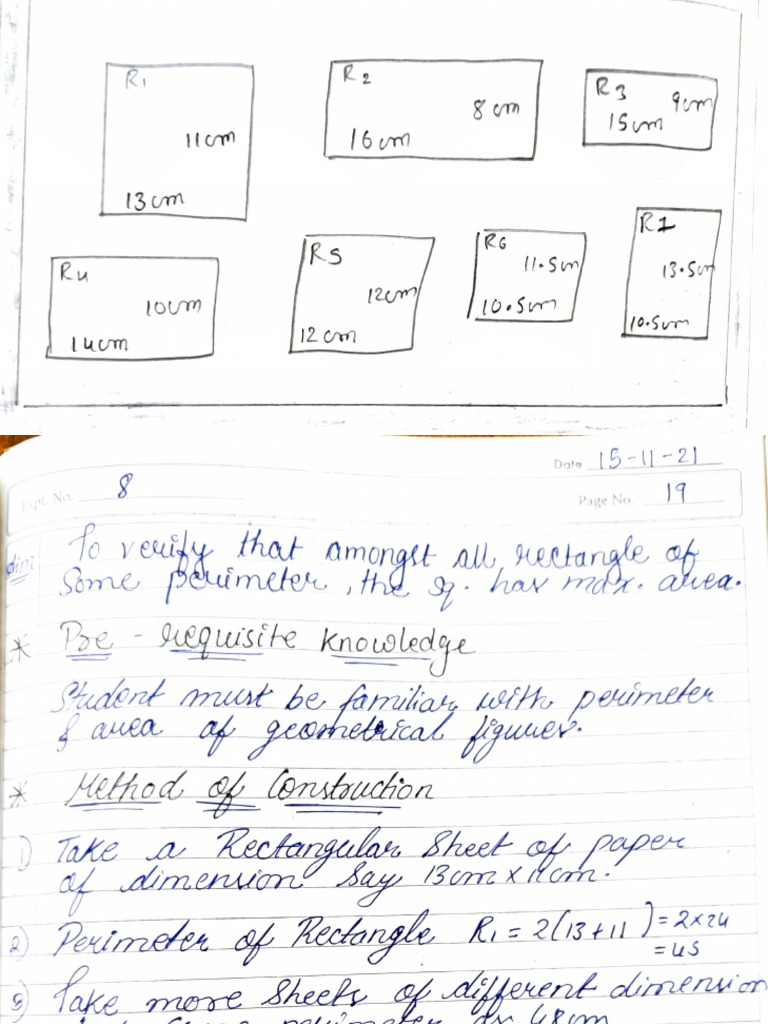 R1
11cm
13cm
R2
8cm
16cm
R3
9cm
15cm
R4
10cm
14cm
R5
12cm
12cm
R6
11.5m
10.5cm
R7
13.5cm
10.5cm
Date 15-11-21
Expt. No. 8
Page No. 19
Aim To verify that amongst all rectangle of
Same perimeter, the sq. has max. area.
* Pre - requisite knowledge
Student must be familiar with perimeter
& area of geometrical figures.
* Method of Construction
1) Take a Rectangular Sheet of paper
of dimension Say 13cm x 11cm.
2) Perimeter of Rectangle R1 = 2(13+11) = 2×24
= 48
3) Take more Sheets of different dimension
perimeter as 48cm